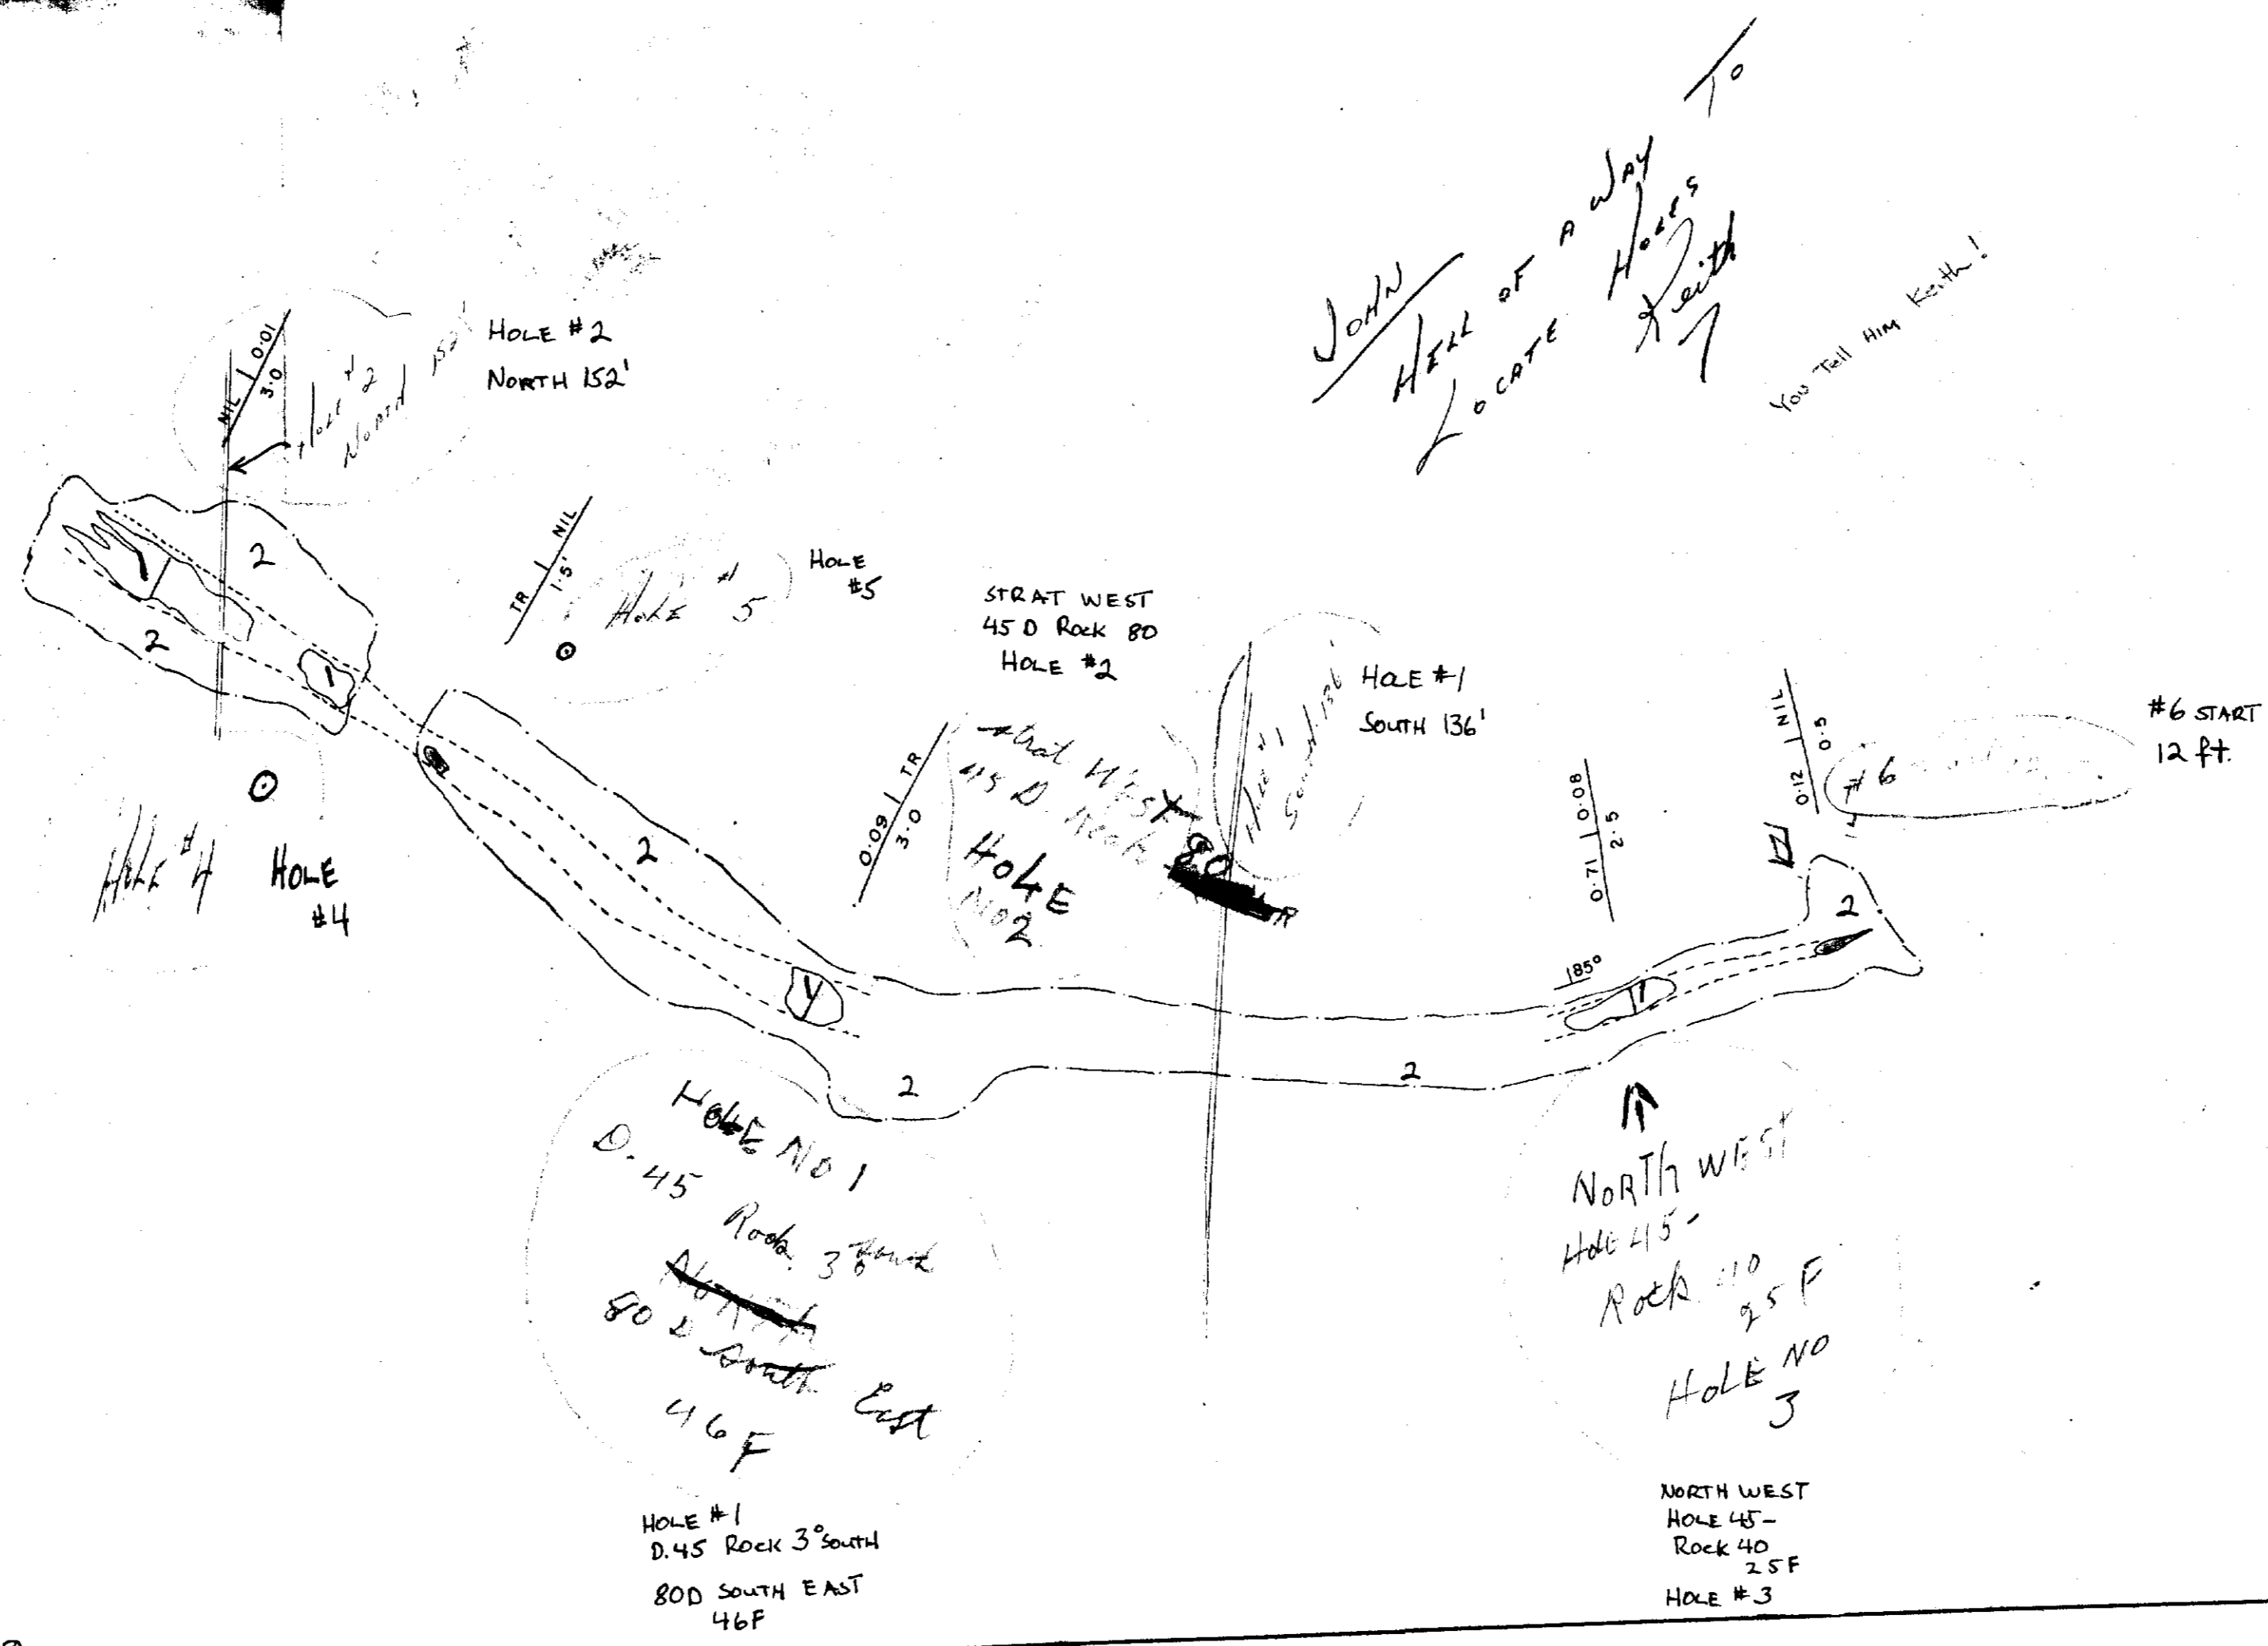 JOHN
HELL OF A WAY TO
LOCATE HOLES
Keith
You Tell HIM Keith!
NIL | 0.01
3.0
HOLE #2
NORTH 152'
HOLE #2
NORTH 152'
2
1
2
1
TR | NIL
1.5'
HOLE #5
HOLE
#5
STRAT WEST
45 D Rock 80
HOLE #2
HOLE #1
SOUTH 136'
Hole #1
South 136'
NIL
0.12 | NIL
0.5
#6
#6 START
12 ft.
HOLE #4
HOLE
#4
2
0.09 | TR
3.0
Strat WEST
45 D. Rock 80
HOLE
NO 2
0.71 | 0.08
2.5
2
85°
1
1
2
2
HOLE NO 1
D. 45 Rock 3° South
80 D South East
46 F
NORTH WEST
Hole 45-
Rock 40
25 F
HOLE NO
3
HOLE #1
D.45 Rock 3° SOUTH
80D SOUTH EAST
46F
NORTH WEST
HOLE 45-
Rock 40
25F
HOLE #3